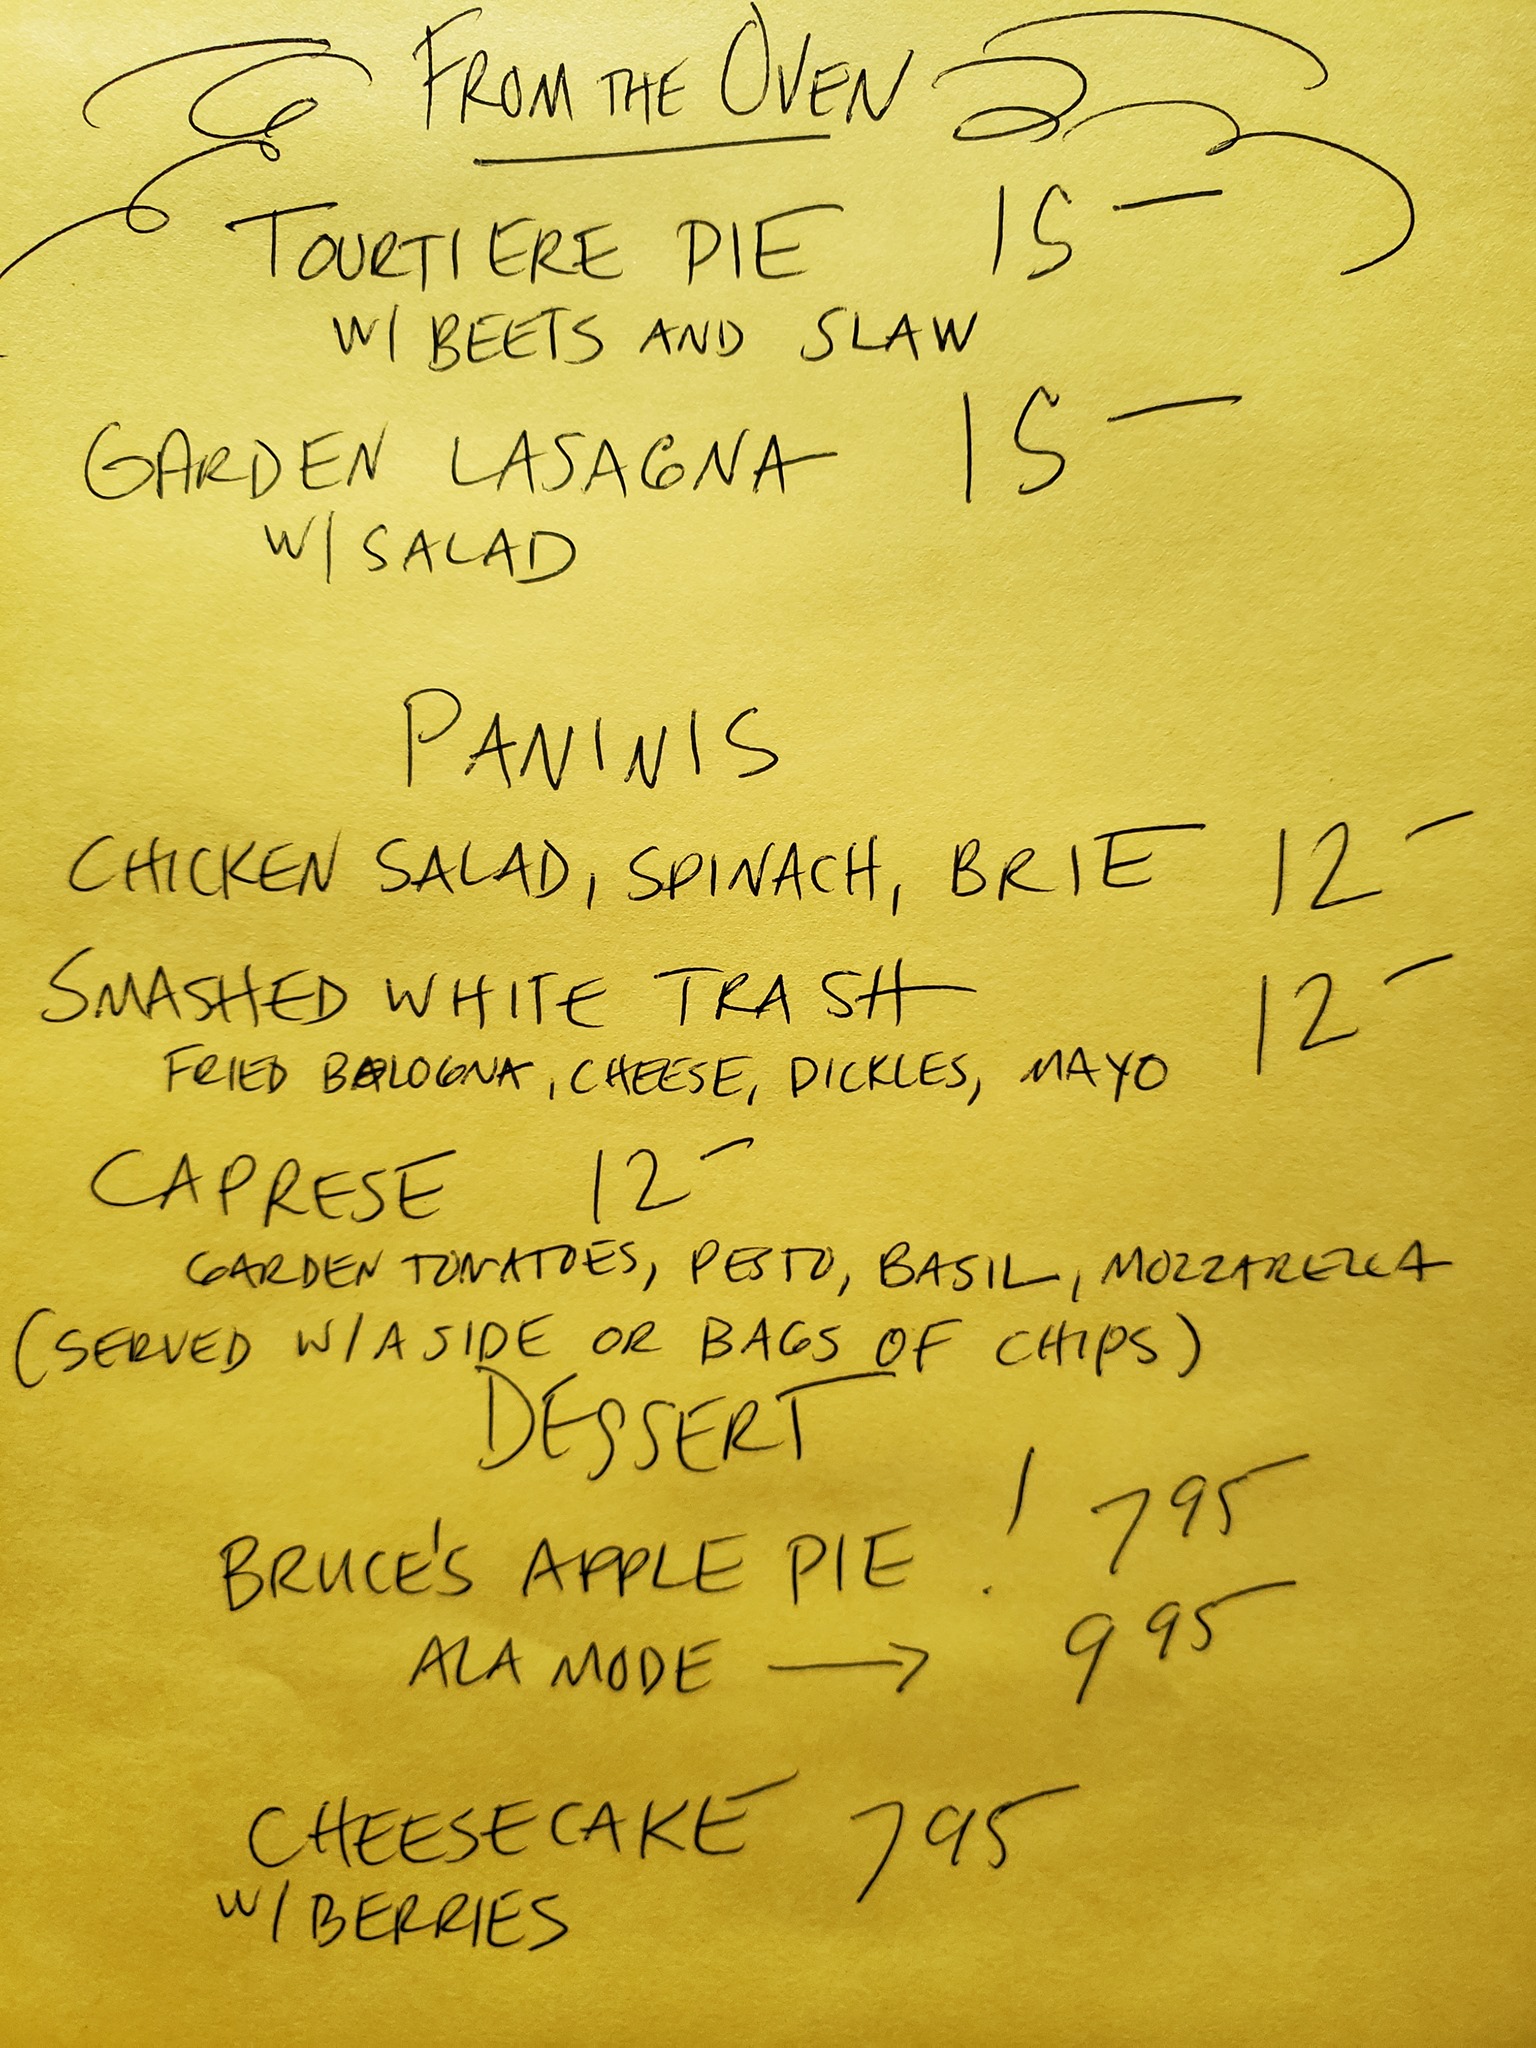 FROM THE OVEN
TOURTIERE PIE 15 —
W/ BEETS AND SLAW
GARDEN LASAGNA 15 —
W/ SALAD
PANINIS
CHICKEN SALAD, SPINACH, BRIE 12 —
SMASHED WHITE TRASH 12 —
FRIED BOLOGNA, CHEESE, PICKLES, MAYO
CAPRESE 12 —
GARDEN TOMATOES, PESTO, BASIL, MOZZARELLA
(SERVED W/ A SIDE OR BAGS OF CHIPS)
DESSERT
BRUCE'S APPLE PIE ! 7 95
ALA MODE → 9 95
CHEESECAKE 7 95
W/ BERRIES